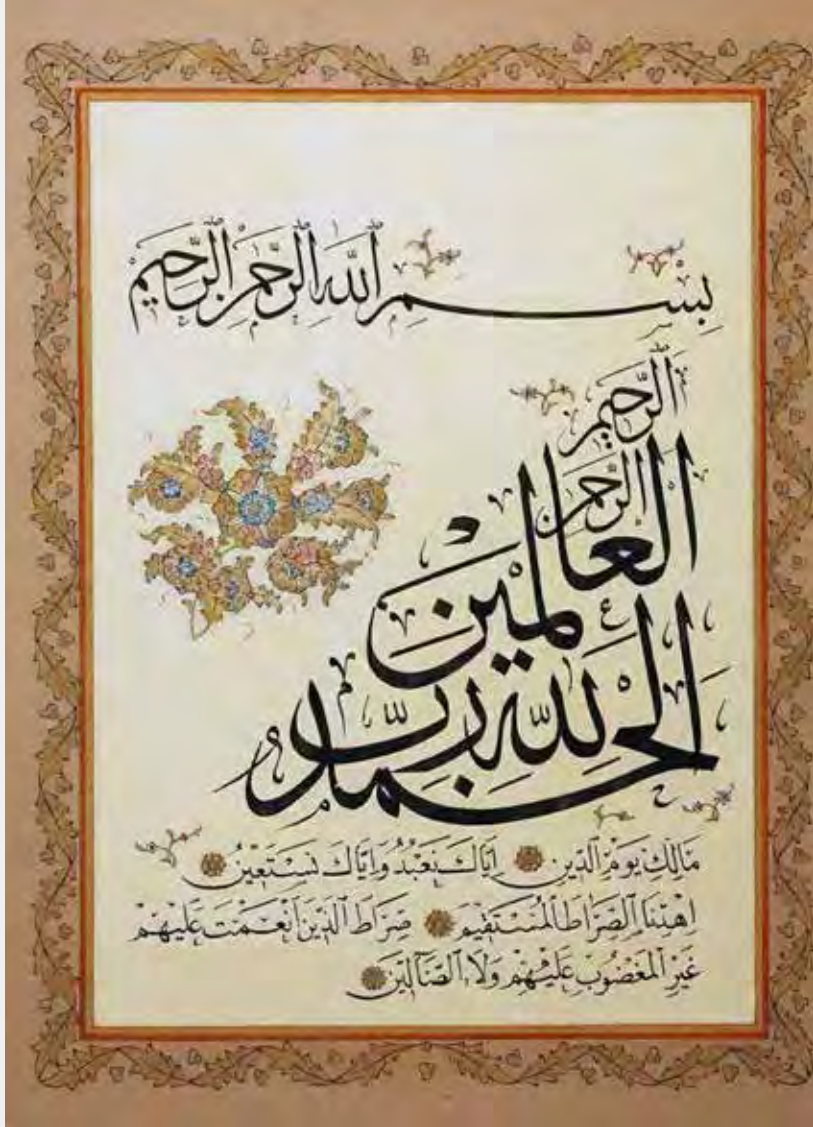 بِسْمِ ٱللَّهِ ٱلرَّحْمَٰنِ ٱلرَّحِيمِ
ٱلْحَمْدُ لِلَّهِ رَبِّ
ٱلْعَالَمِينَ
ٱلرَّحْمَٰنِ
ٱلرَّحِيمِ
مَالِكِ يَوْمِ ٱلدِّينِ اِيَّاكَ نَعْبُدُ وَاِيَّاكَ نَسْتَعِينُ
اِهْدِنَا ٱلصِّرَاطَ ٱلْمُسْتَقِيمَ صِرَاطَ ٱلَّذِينَ اَنْعَمْتَ عَلَيْهِمْ
غَيْرِ ٱلْمَغْضُوبِ عَلَيْهِمْ وَلَا ٱلضَّآلِّينَ